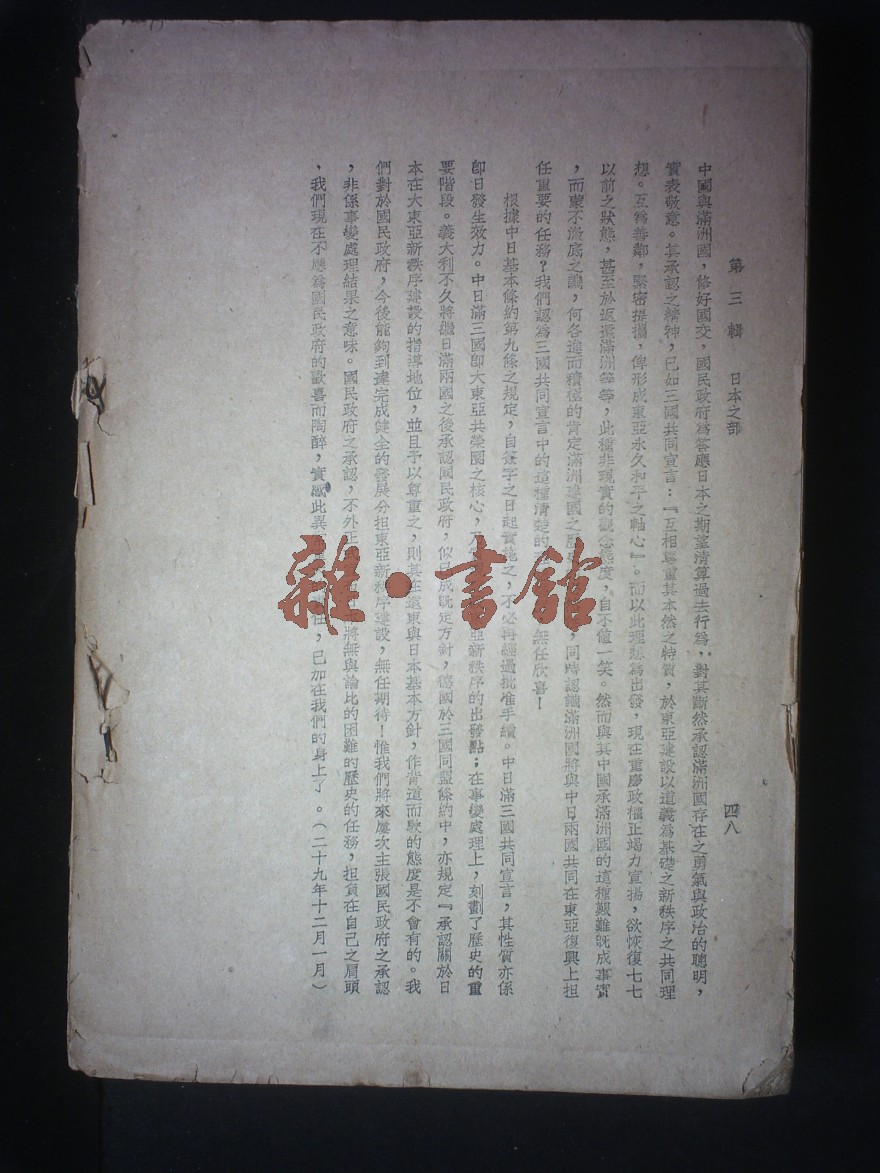 第三輯　日本之部　四八
中國與滿洲國，修好國交，國民政府爲答應日本之期望清算過去行爲，對其斷然承認滿洲國存在之勇氣與政治的聰明，
實表敬意。其承認之精神，已如三國共同宣言：『互相尊重其本然之特質，於東亞建設以道義爲基礎之新秩序之共同理
想。互爲善鄰，緊密提攜，俾形成東亞永久和平之軸心』。而以此理想爲出發，現在重慶政權正竭力宣揚，欲恢復七七
以前之狀態，甚至於返還滿洲等等，此種非現實的觀念態度，自不值一笑。然而與其中國承滿洲國的這種艱難旣成事實
，而蒙不澈底之譏，何各進而積極的肯定滿洲建國之歷，同時認識滿洲國將與中日兩國共同在東亞復興上担
任重要的任務？我們認爲三國共同宣言中的這種清楚的無任欣喜！
根據中日基本條約第九條之規定，自簽字之日起實施之，不必再經過批准手續。中日滿三國共同宣言，其性質亦係
卽日發生效力。中日滿三國卽大東亞共榮圈之核心，亞新秩序的出發點；在事變處理上，刻劃了歷史的重
要階段。義大利不久將繼日滿兩國之後承認國民政府，似已成旣定方針，德國於三國同盟條約中，亦規定『承認關於日
本在大東亞新秩序建設的指導地位，並且予以尊重之，則其在遠東與日本基本方針，作背道而駛的態度是不會有的。我
們對於國民政府，今後能夠到達完成健全的發展分担東亞新秩序建設，無任期待！惟我們將來屢次主張國民政府之承認
，非係事變處理結果之意味。國民政府之承認，不外正將無與論比的困難的歷史的任務，担負在自己之肩頭
、我們現在不應爲國民政府的歡喜而陶醉，實感此異，已加在我們的身上了。（二十九年十二月一月）
雜·書館